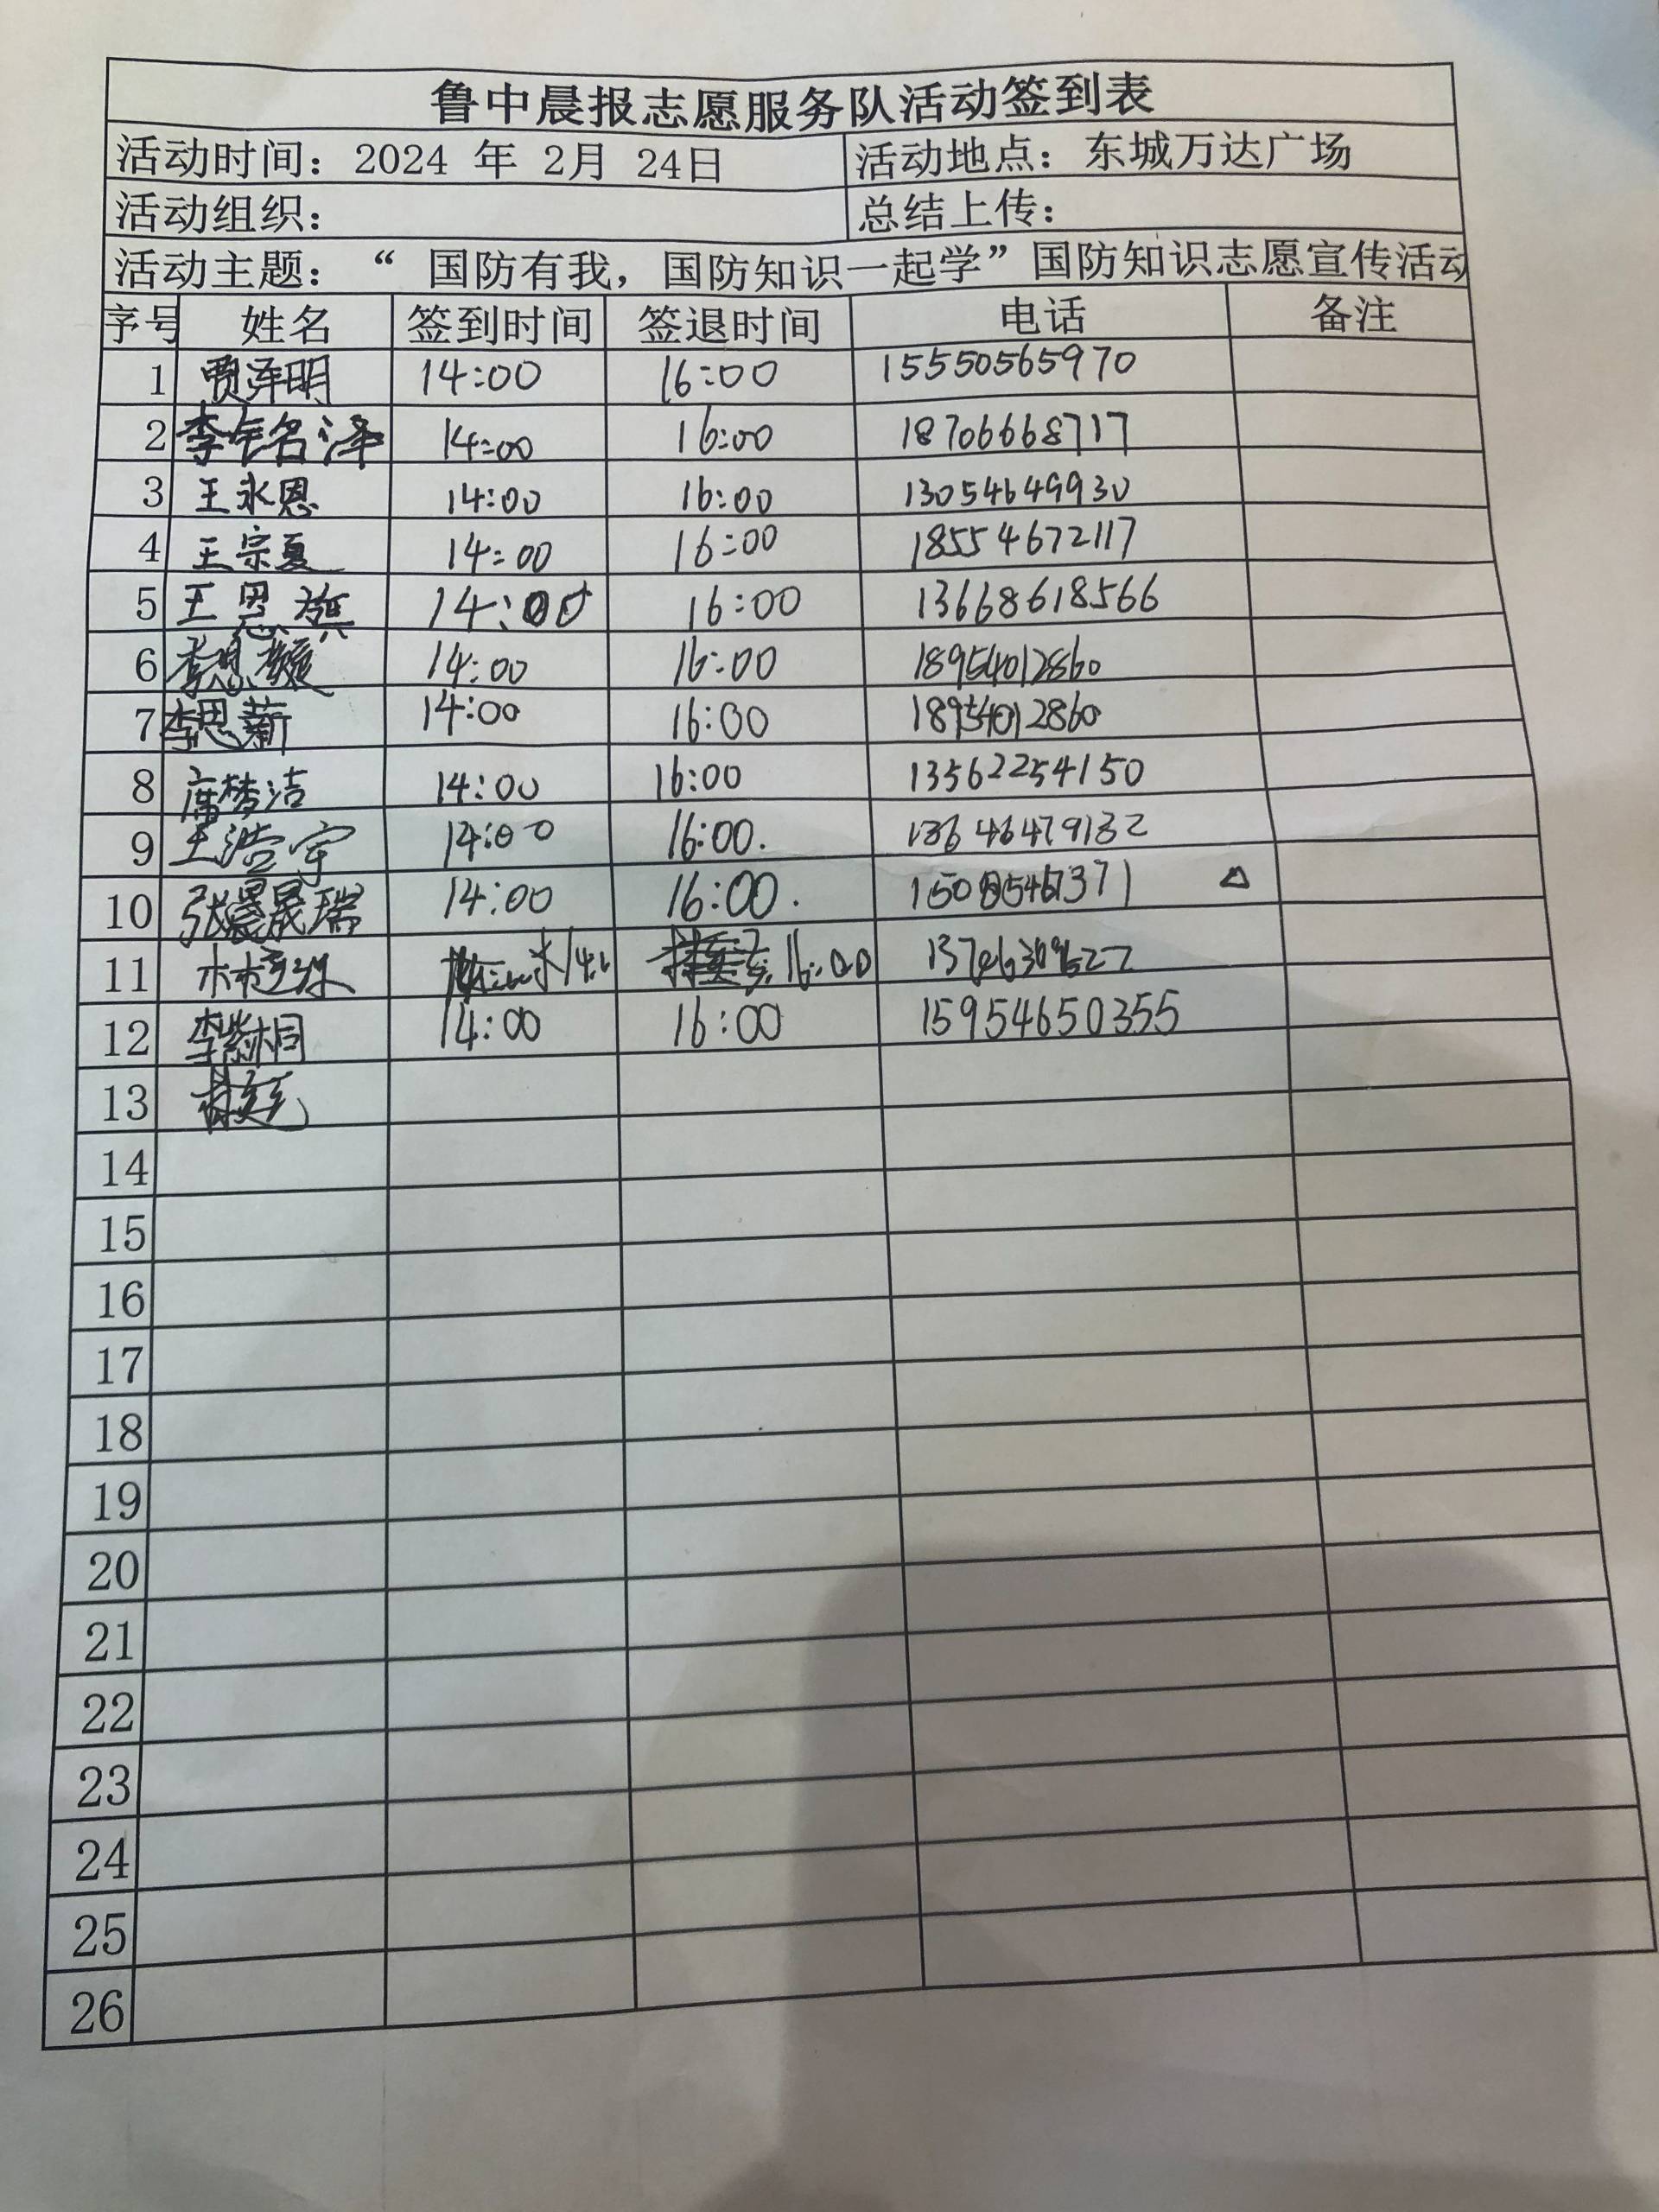 鲁中晨报志愿服务队活动签到表
活动时间：2024 年 2月 24日 活动地点：东城万达广场
活动组织： 总结上传：
活动主题：“ 国防有我，国防知识一起学”国防知识志愿宣传活动
序号 姓名 签到时间 签退时间 电话 备注
1 贾泽明 14:00 16:00 15550565970
2 李 名泽 14:00 16:00 18706668717
3 王永恩 14:00 16:00 13054649930
4 王宗夏 14:00 16:00 18554672117
5 王恩旗 14:00 16:00 13668618566
6 李思 14:00 16:00 18954012860
7 李思薪 14:00 16:00 18954012860
8 席梦洁 14:00 16:00 13562254150
9 王浩宇 14:00 16:00. 13646479132
10 张晟瑞 14:00 16:00. △
11 16:00
12 李紫桐 14:00 16:00 15954650355
13
14
15
16
17
18
19
20
21
22
23
24
25
26